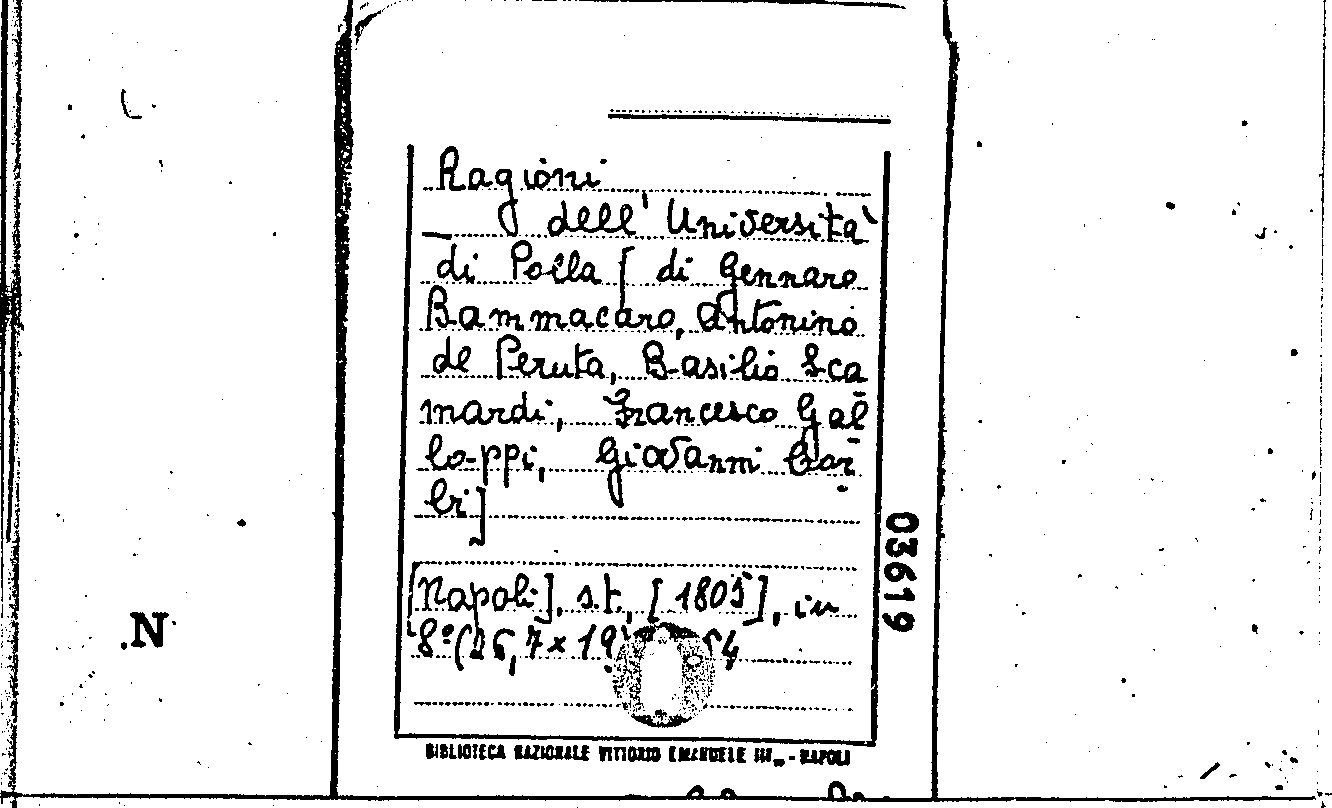 Ragioni
dell' Università
di Polla [ di Gennaro
Bammacaro, Antonino
de Peruta, Basilio Sca
mardi, Francesco Gal
loppi, Giovanni Car
li]
[Napoli], s.t., [1805], in
8º (26,7 x 19
03619
.N
BIBLIOTECA NAZIONALE VITTORIO EMANUELE III - NAPOLI